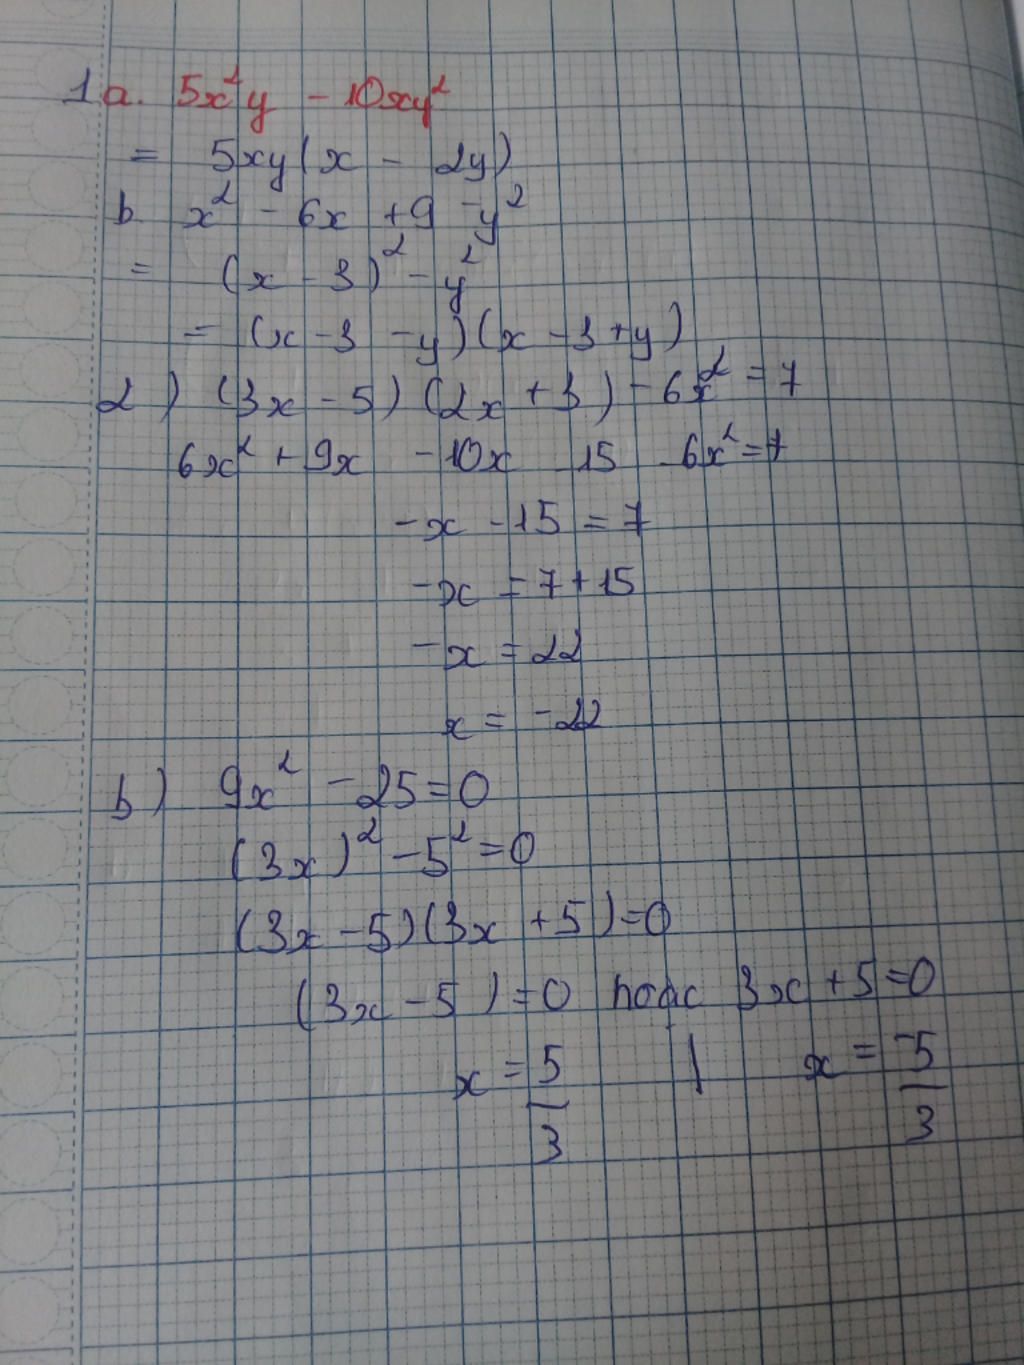 1a. 5x²y - 10xy²
= 5xy(x - 2y)
b x² - 6x + 9 - y²
= (x - 3)² - y²
= (x - 3 - y)(x - 3 + y)
2) (3x - 5)(2x + 3) - 6x² = 7
6x² + 9x - 10x 15 - 6x² = 7
-x - 15 = 7
-x = 7 + 15
-x = 22
x = -22
b) 9x² - 25 = 0
(3x)² - 5² = 0
(3x - 5)(3x + 5) = 0
(3x - 5) = 0 hoặc 3x + 5 = 0
x = 5/3 | x = -5/3